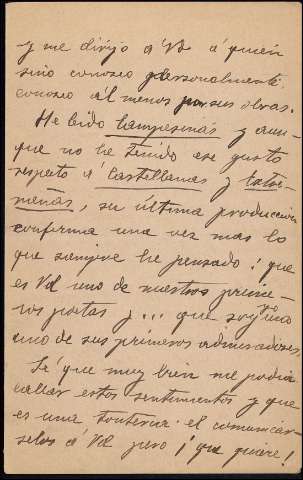 y me dirijo á Vd á quien
sino conozco personalmente,
conozco al menos por sus obras.
He leido Campesinas y aun-
que no he tenido ese gusto
respecto á Castellanas y Extre-
meñas, su última produccion
confirma una vez mas lo
que siempre he pensado: que
es Vd uno de nuestros prime-
ros poetas y... que soy yo
uno de sus primeros admiradores.
Sé que muy bien me podria
callar estos sentimientos y que
es una tonteria el comunicar-
selos á Vd pero ¡que quiere!